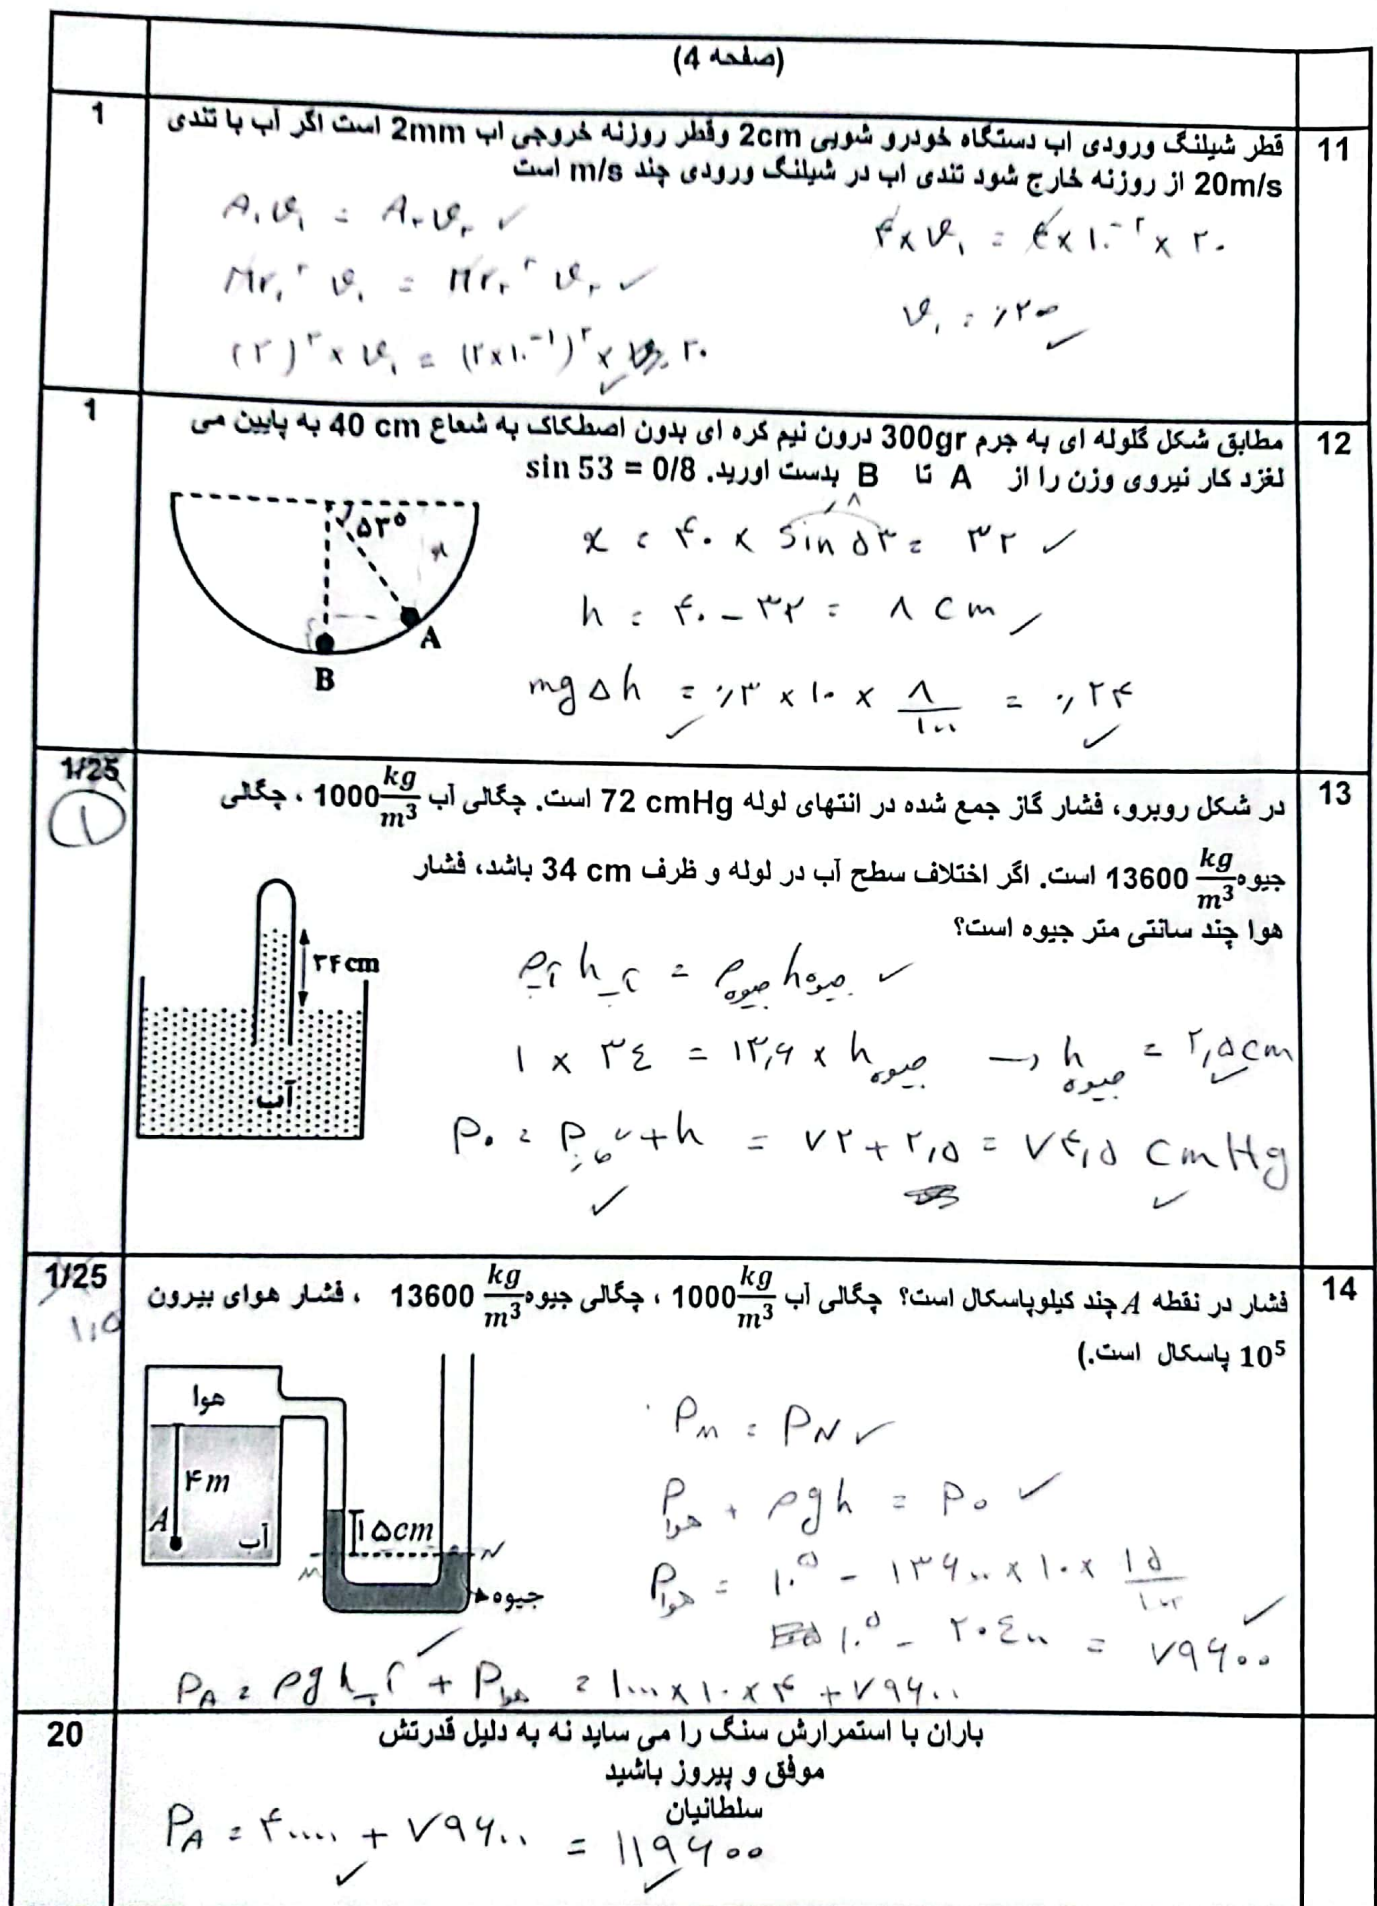 (صفحه 4)
11
قطر شیلنگ ورودی اب دستگاه خودرو شویی 2cm وقطر روزنه خروجی اب 2mm است اگر آب با تندی
1
20m/s از روزنه خارج شود تندی اب در شیلنگ ورودی چند m/s است
A₁v₁ = A₂v₂ ✓
πr₁² v₁ = πr₂² v₂ ✓
(۲)² × v₁ = (۲×۱۰⁻¹)² × ۲۰
۴ × v₁ = ۴ × ۱۰⁻² × ۲۰
v₁ = ٫۲۰ ✓
12
مطابق شکل گلوله ای به جرم 300gr درون نیم کره ای بدون اصطکاک به شعاع 40 cm به پایین می
1
لغزد کار نیروی وزن را از A تا B بدست اورید. sin 53 = 0/8
۵۳°
x
A
B
٫۸
x = ۴۰ × sin ۵۳ = ۳۲ ✓
h = ۴۰ − ۳۲ = ۸ cm ✓
mgΔh = ۰٫۳ × ۱۰ × ۸/۱۰۰ = ۰٫۲۴ ✓
13
در شکل روبرو، فشار گاز جمع شده در انتهای لوله 72 cmHg است. چگالی آب 1000 kg/m³ ، چگالی
1/25
۱
جیوه 13600 kg/m³ است. اگر اختلاف سطح آب در لوله و ظرف 34 cm باشد، فشار
هوا چند سانتی متر جیوه است؟
۳۴cm
آب
ρآب hآب = ρجیوه hجیوه ✓
۱ × ۳٤ = ۱۳٫۶ × hجیوه → hجیوه = ۲٫۵ cm ✓
P₀ = Pگاز + h = ۷۲ + ۲٫۵ = ۷۴٫۵ cmHg ✓
14
فشار در نقطه A چند کیلوپاسکال است؟ چگالی آب 1000 kg/m³ ، چگالی جیوه 13600 kg/m³ ، فشار هوای بیرون
1/25
۱٫۵
10⁵ پاسکال است.)
هوا
۴m
A
آب
۱۵cm
M
N
جیوه
P_M = P_N ✓
Pهوا + ρgh = P₀ ✓
Pهوا = ۱۰⁵ − ۱۳۶۰۰ × ۱۰ × ۱۵/۱۰۰
۱۰⁵ − ۲۰٤۰۰ = ۷۹۶۰۰ ✓
P_A = ρghآب + Pهوا = ۱۰۰۰ × ۱۰ × ۴ + ۷۹۶۰۰
20
باران با استمرارش سنگ را می ساید نه به دلیل قدرتش
موفق و پیروز باشید
سلطانیان
P_A = ۴۰۰۰۰ + ۷۹۶۰۰ = ۱۱۹۶۰۰ ✓